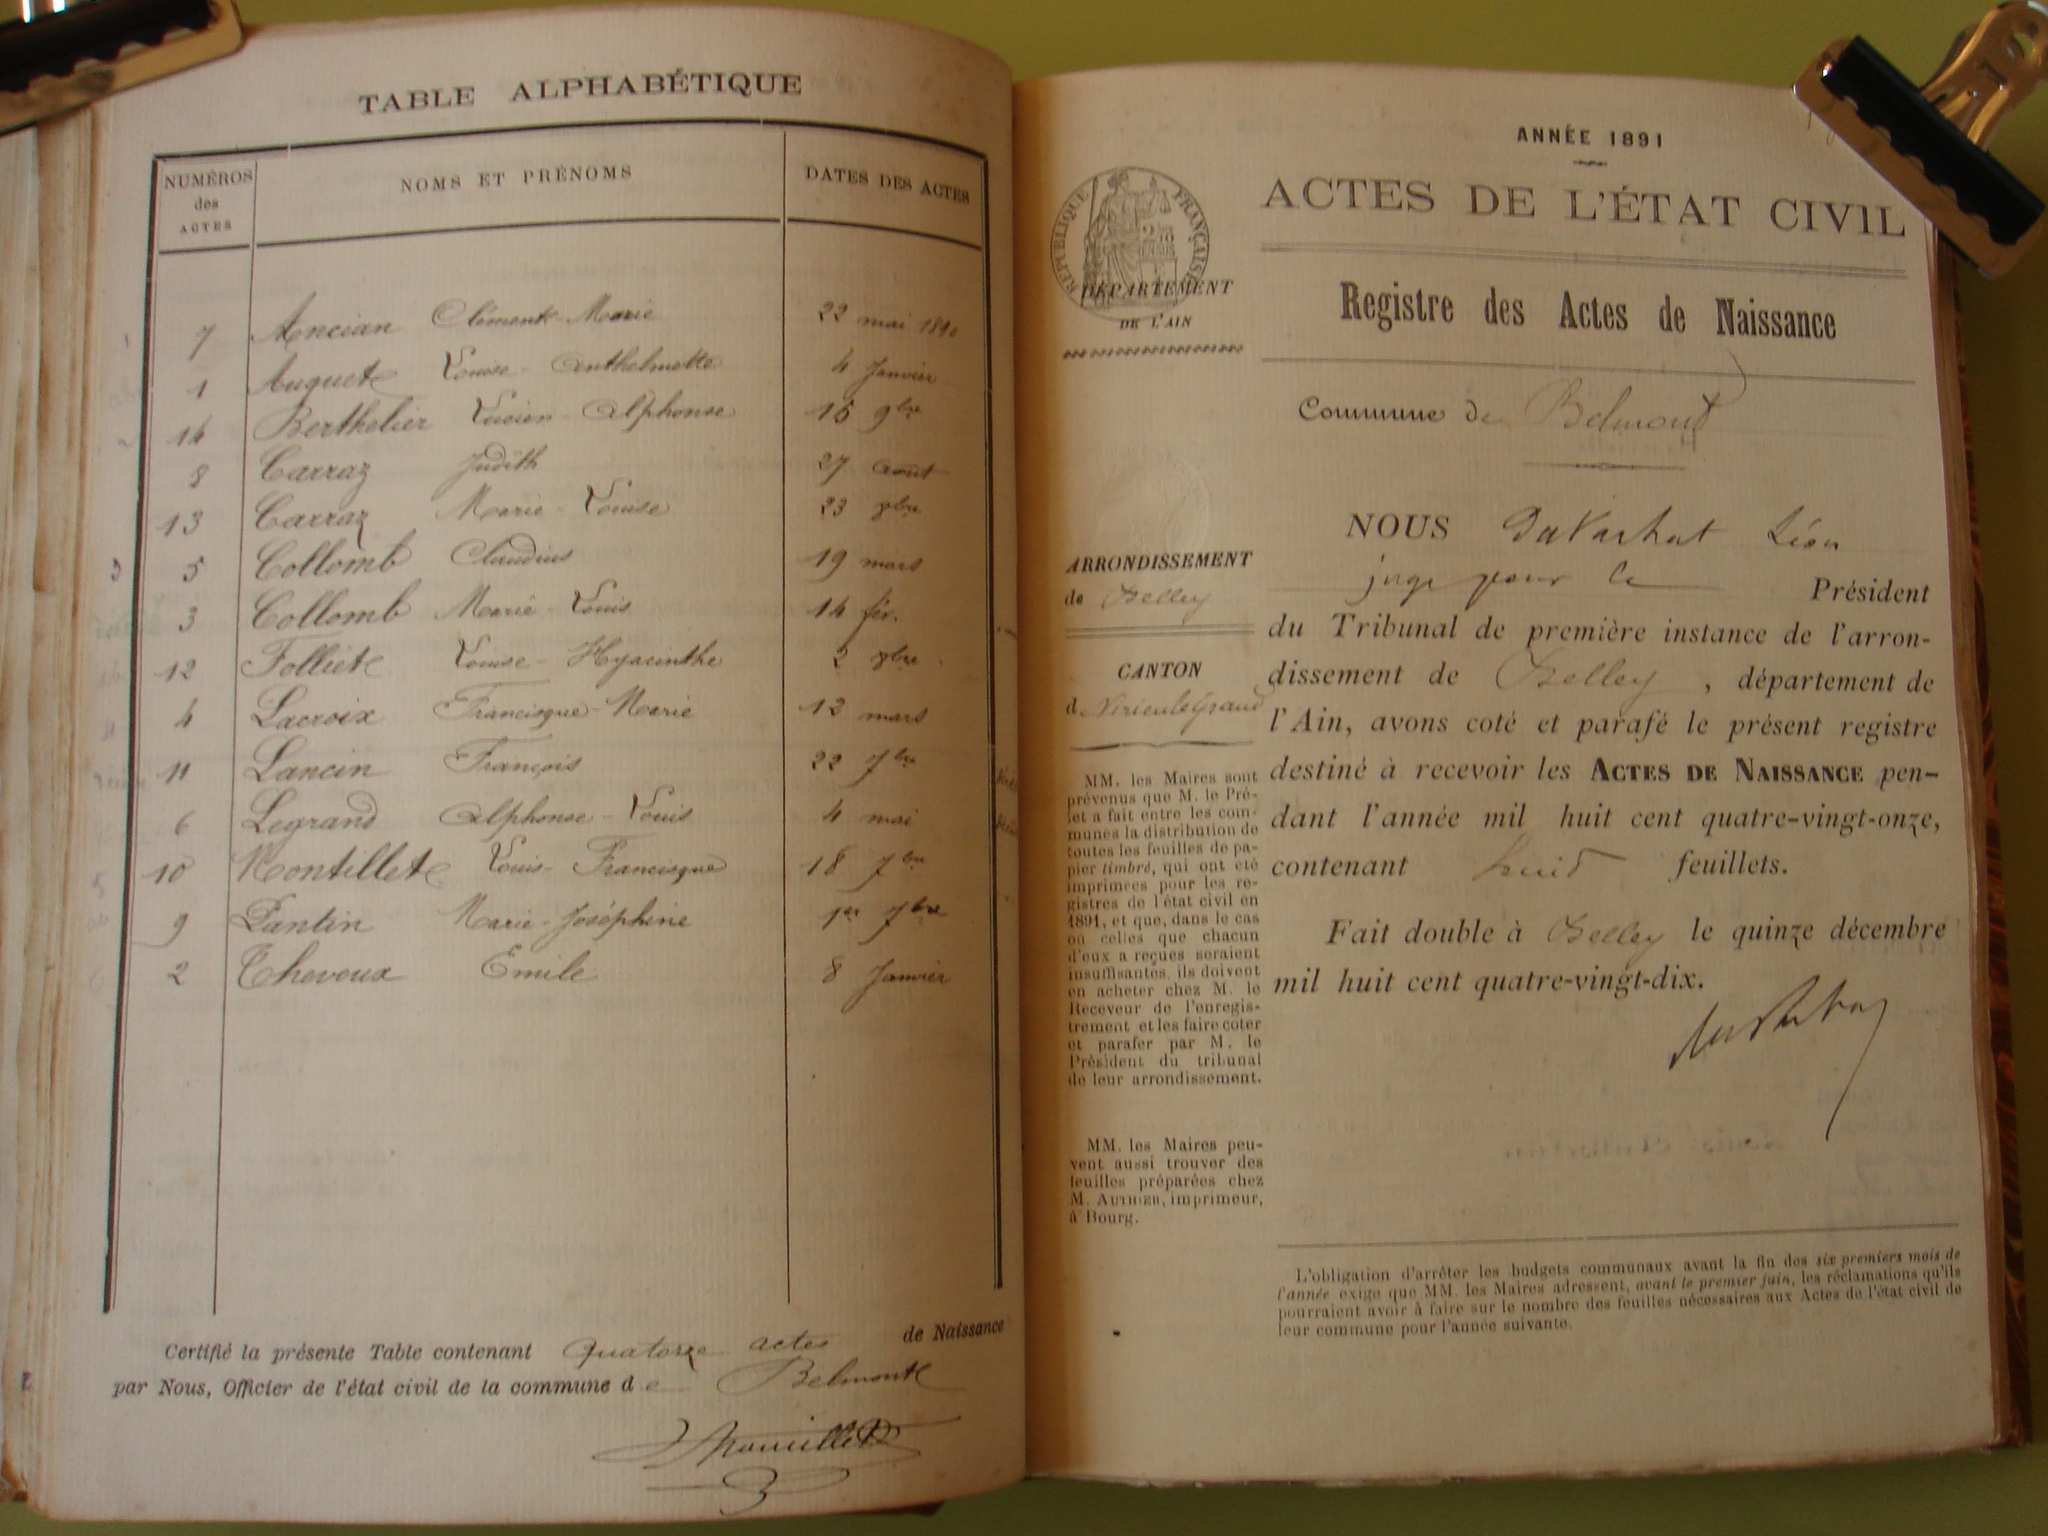 TABLE ALPHABÉTIQUE
NUMÉROS des ACTES
NOMS ET PRÉNOMS
DATES DES ACTES
7 Ancian Clémente Marie 22 mai 1890
1 Auguet Louise-Anthelmette 4 Janvier
14 Berthelier Lucien-Alphonse 15 9bre
8 Carraz Judith 27 août
13 Carraz Marie-Louise 23 8bre
5 Collomb Claudius 19 mars
3 Collomb Marie-Louis 14 fév.
12 Folliet Louise-Hyacinthe 2 8bre
4 Lacroix Francisque-Marie 12 mars
11 Lancin François 22 7bre
6 Legrand Alphonse-Louis 4 mai
10 Montillet Louis-Francisque 18 7bre
9 Pantin Marie-Joséphine 1er 7bre
2 Theveux Emile 8 Janvier
Certifié la présente Table contenant quatorze actes de Naissance
par Nous, Officier de l'état civil de la commune de Belmont
ANNÉE 1891
ACTES DE L'ÉTAT CIVIL
RÉPUBLIQUE FRANÇAISE
DÉPARTEMENT
DE L'AIN
Registre des Actes de Naissance
Commune de Belmont
ARRONDISSEMENT
de Belley
CANTON
de Virieu le Grand
MM. les Maires sont
prévenus que M. le Pré-
fet a fait entre les com-
munes la distribution de
toutes les feuilles de pa-
pier timbré, qui ont été
imprimées pour les re-
gistres de l'état civil en
1891, et que, dans le cas
où celles que chacun
d'eux a reçues seraient
insuffisantes, ils doivent
en acheter chez M. le
Receveur de l'enregis-
trement et les faire coter
et parafer par M. le
Président du tribunal
de leur arrondissement.
MM. les Maires peu-
vent aussi trouver des
feuilles préparées chez
M. AUTHIER, imprimeur,
à Bourg.
NOUS Léon
juge pour le Président
du Tribunal de première instance de l'arron-
dissement de Belley, département de
l'Ain, avons coté et parafé le présent registre
destiné à recevoir les ACTES DE NAISSANCE pen-
dant l'année mil huit cent quatre-vingt-onze,
contenant huit feuillets.
Fait double à Belley le quinze décembre
mil huit cent quatre-vingt-dix.
L'obligation d'arrêter les budgets communaux avant la fin des six premiers mois de
l'année exige que MM. les Maires adressent, avant le premier juin, les réclamations qu'ils
pourraient avoir à faire sur le nombre des feuilles nécessaires aux Actes de l'état civil de
leur commune pour l'année suivante.